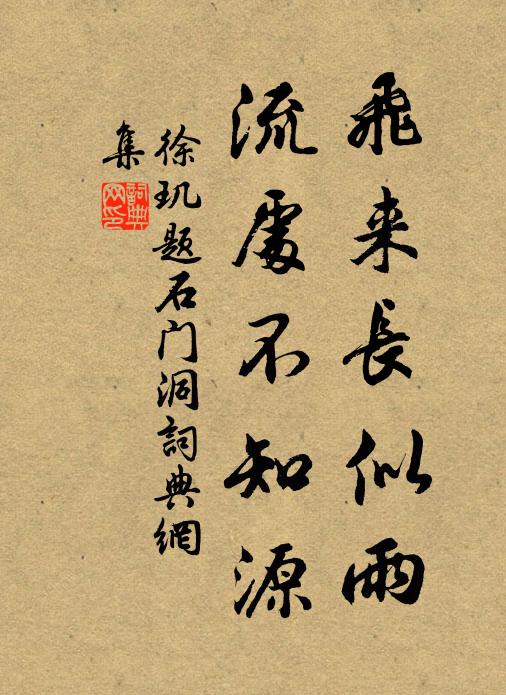 飛来長似雨
流處不知源
徐玑题石门洞詞典網
集
詞典网印